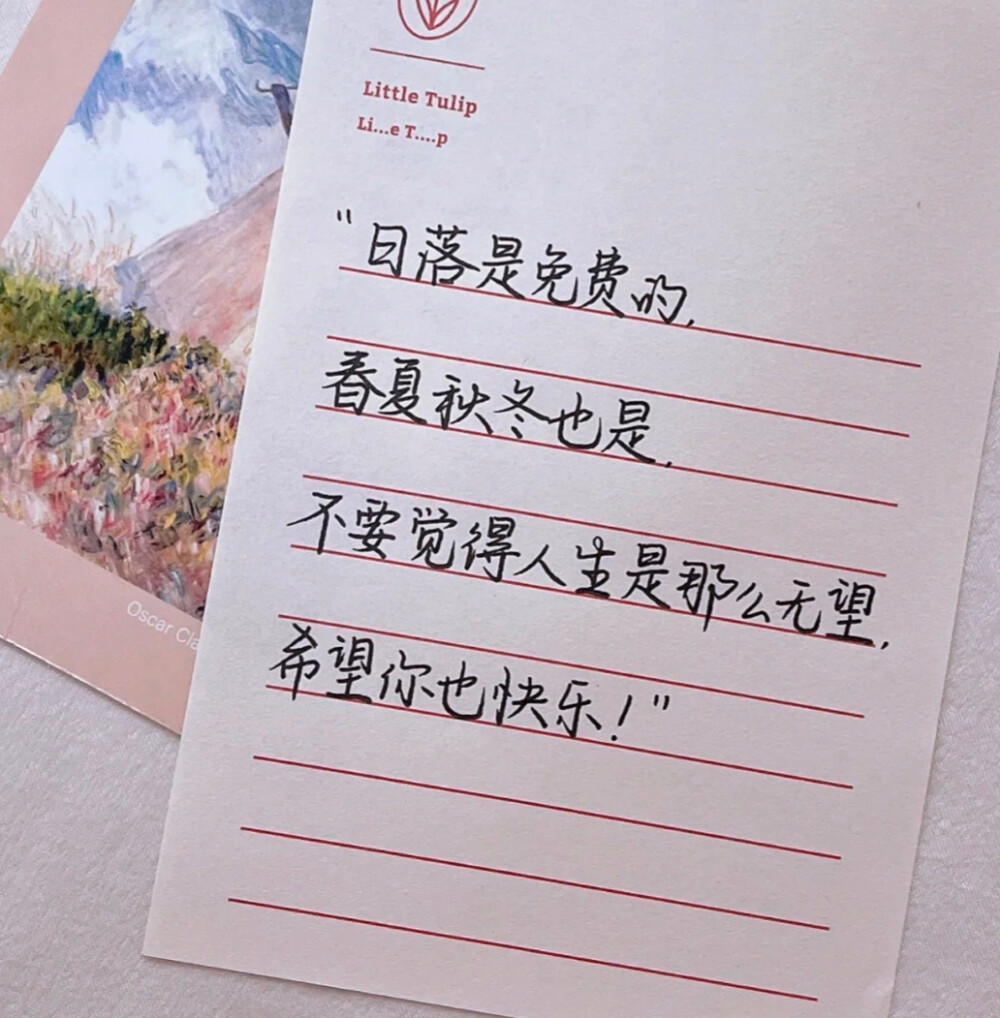 Little Tulip
Li...e T....p
"日落是免费的,
春夏秋冬也是.
不要觉得人生是那么无望,
希望你也快乐!"
Oscar Cla